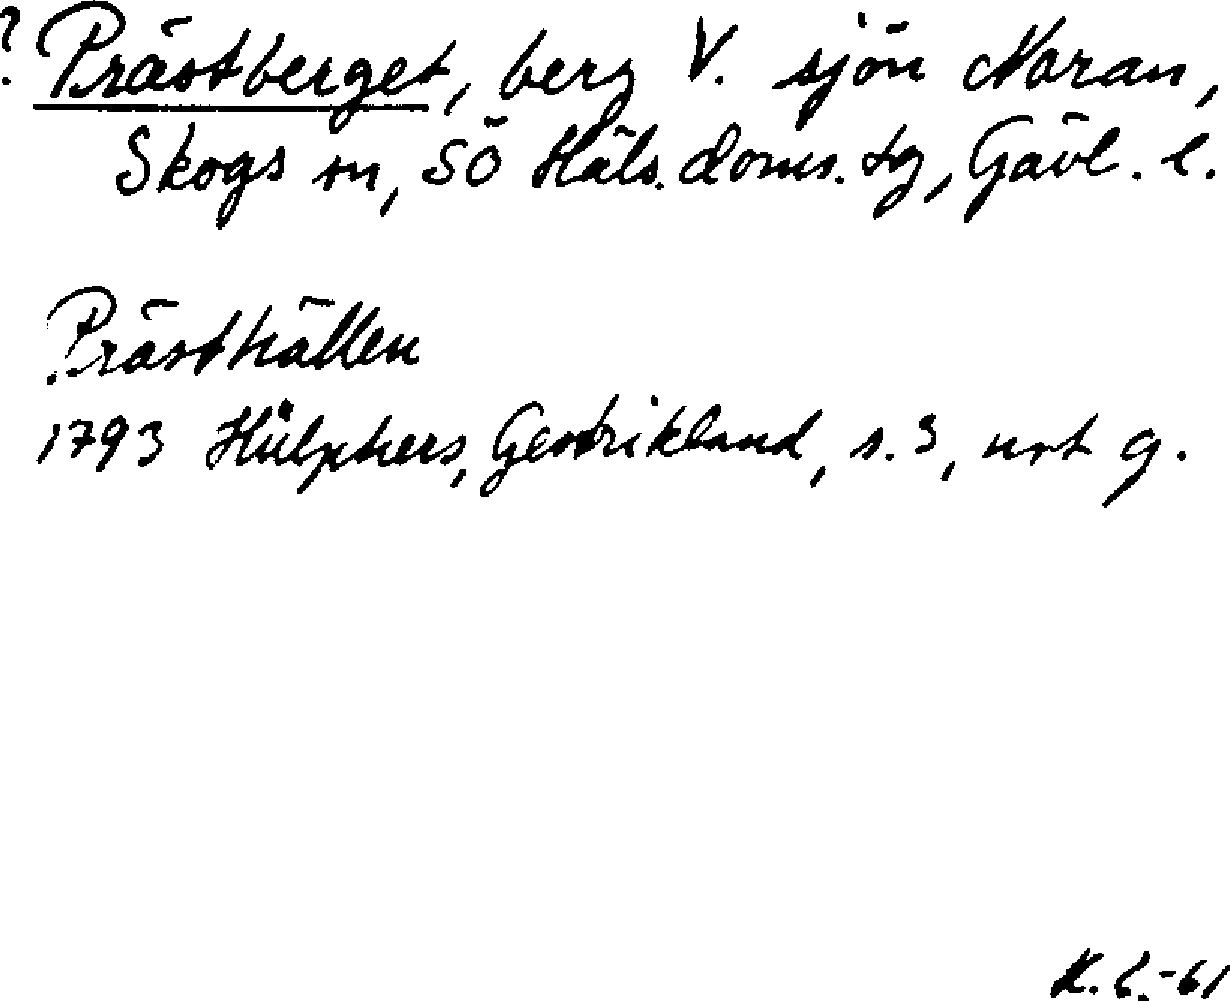 ? Prästberget, berg V. sjön Noran,
Skogs sn, SÖ Häls. doms. tg, Gävl. l.
Prästhällen
1793 Hülphers, Gestrikland, s. 3, not g.
K. L. -61